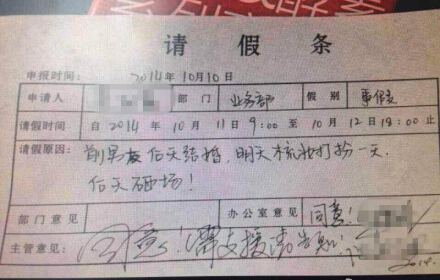 请假条
申报时间： 2014年10月10日
申请人 部门 业务部 假别 事假
请假时间： 自2014年10月11日9:00至10月12日18:00止
请假原因： 前男友后天结婚，明天梳妆打扮一天，
后天砸场！
部门意见 办公室意见 同意！
主管意见： 同意！需支援请告知！
2014.